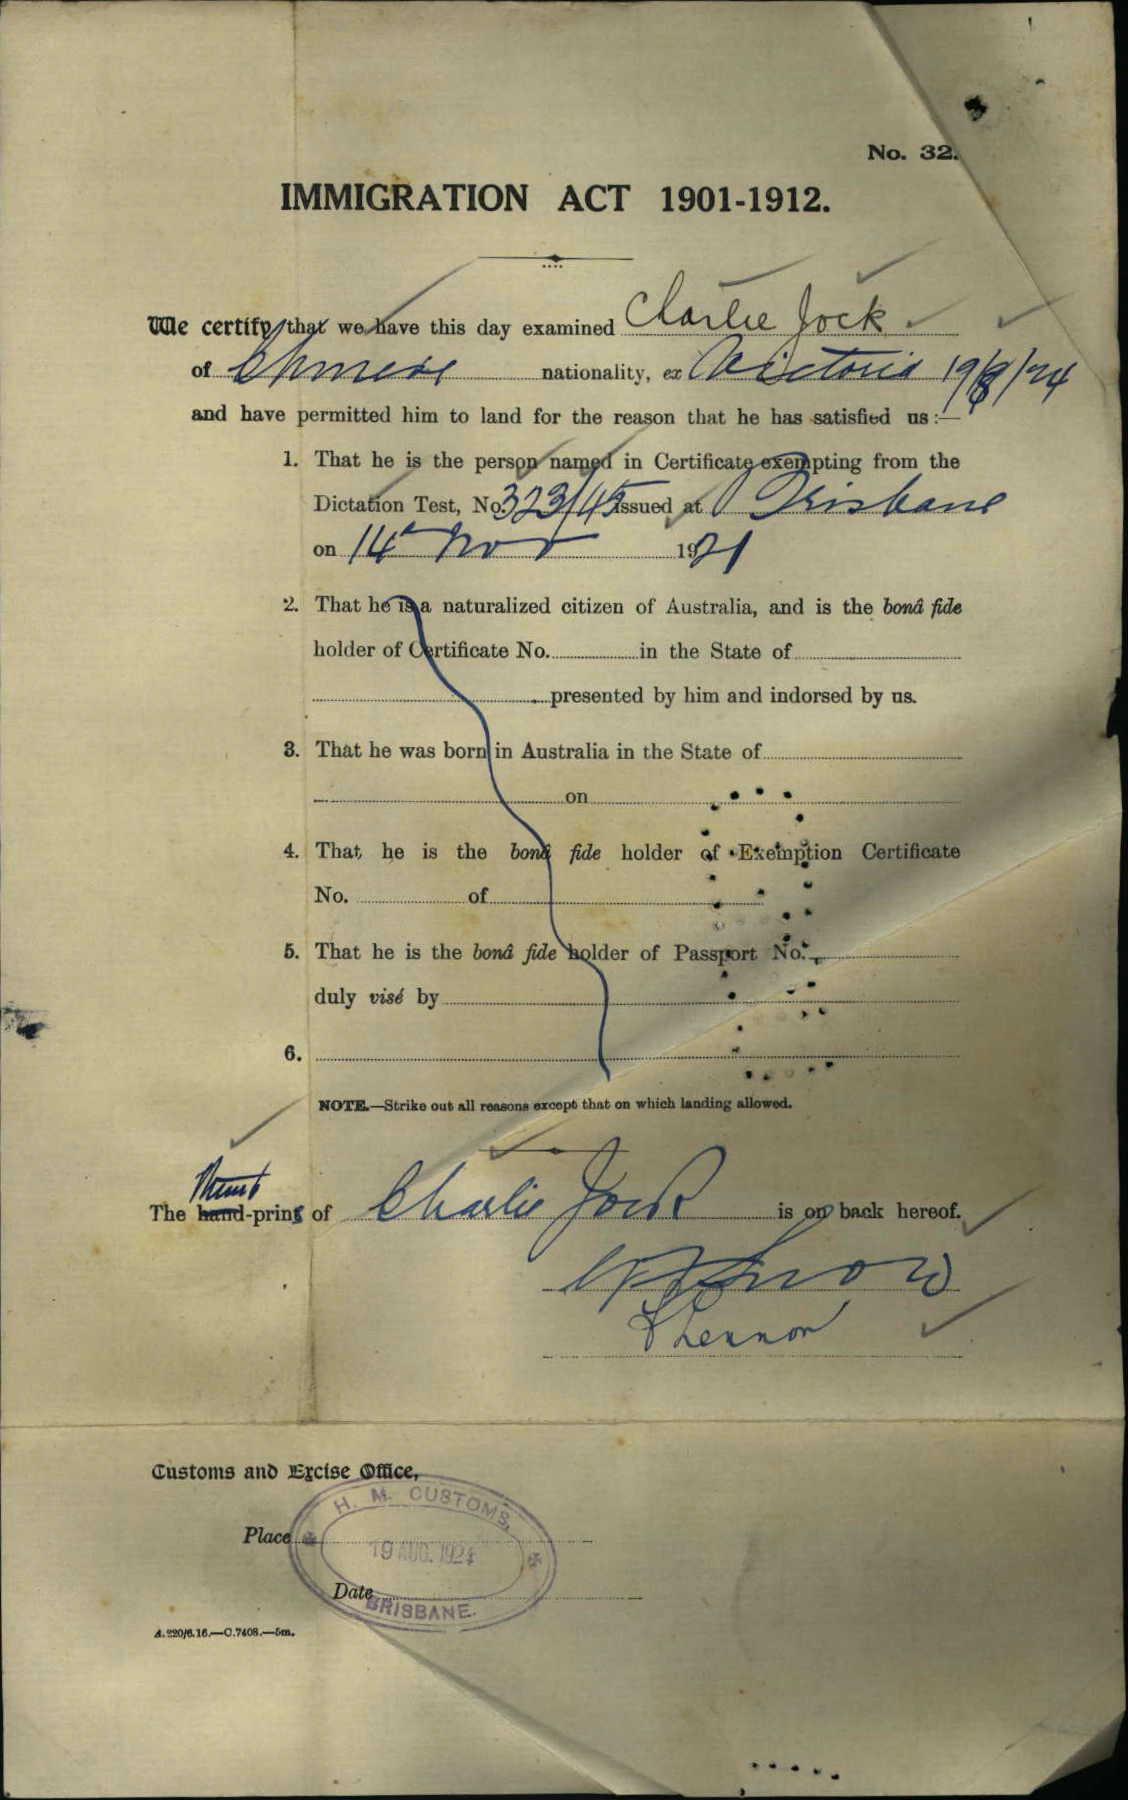 No. 32.
IMMIGRATION ACT 1901-1912.
We certify that we have this day examined Charlie Jock
of Chinese nationality, ex Victoria 19/8/24
and have permitted him to land for the reason that he has satisfied us :—
1. That he is the person named in Certificate exempting from the
Dictation Test, No. 323/45 issued at Brisbane
on 14th Nov 1921
2. That he is a naturalized citizen of Australia, and is the bonâ fide
holder of Certificate No. in the State of
presented by him and indorsed by us.
3. That he was born in Australia in the State of
on
4. That he is the bonâ fide holder of Exemption Certificate
No. of
5. That he is the bonâ fide holder of Passport No.
duly visé by
6.
NOTE.—Strike out all reasons except that on which landing allowed.
Thumb
The hand-print of Charlie Jock is on back hereof.
Customs and Excise Office,
H. M. CUSTOMS,
Place
19 AUG. 1924
Date
BRISBANE.
A.220/6.16.—C.7408.—5m.